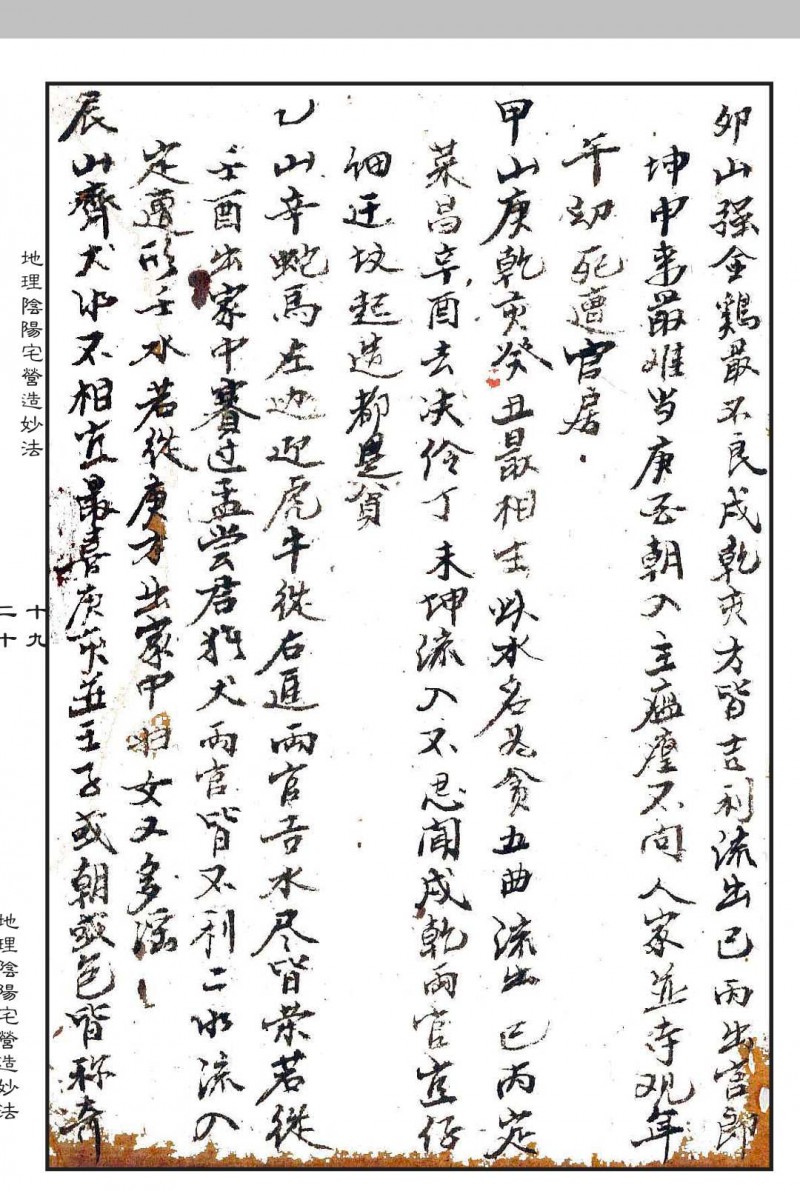 卯山强金鷄最不良戌乾亥方皆吉利流出巳丙出官郎
坤申来最难当庚酉朝入主瘟瘟不问人家並寺观年
年刼死遭官居
甲山庚乾亥癸丑最相生此水名为贪五曲流出巳丙定
荣昌辛酉去决伶丁未坤流入不忍闻戌乾両官宜仔
细迁坟起造都是贫
乙山辛蛇馬左边迎虎牛从右進両官吉水尽皆荣若從
壬酉出家中賽过孟尝君猪犬両官皆不利二水流入
定遭形壬水若從庚方出家中妇女又多淫
辰山齊犬水不相宜最喜庚天並壬子或朝或包皆称奇
地理陰陽宅營造妙法
十九
二十
地理陰陽宅營造妙法